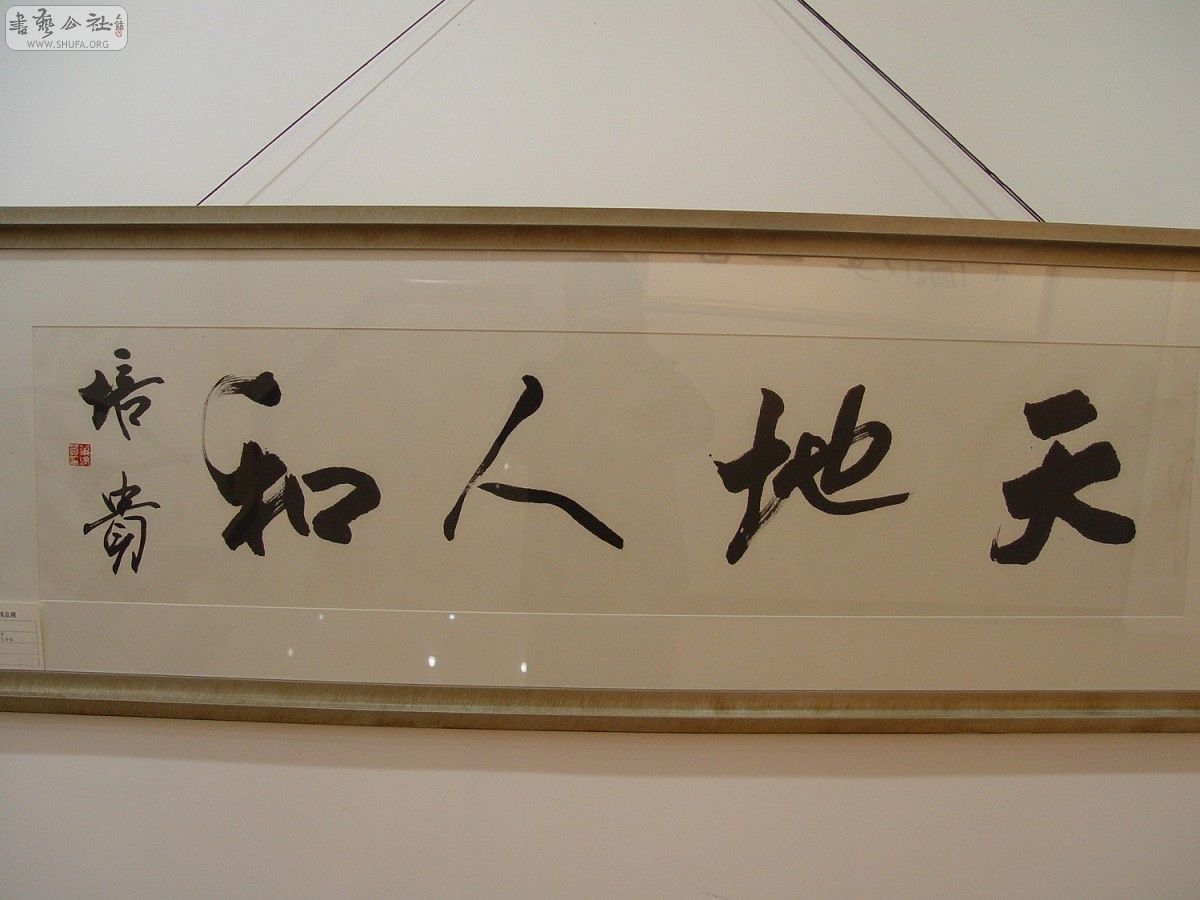 書藝公社
WWW.SHUFA.ORG
天地人和
培貴